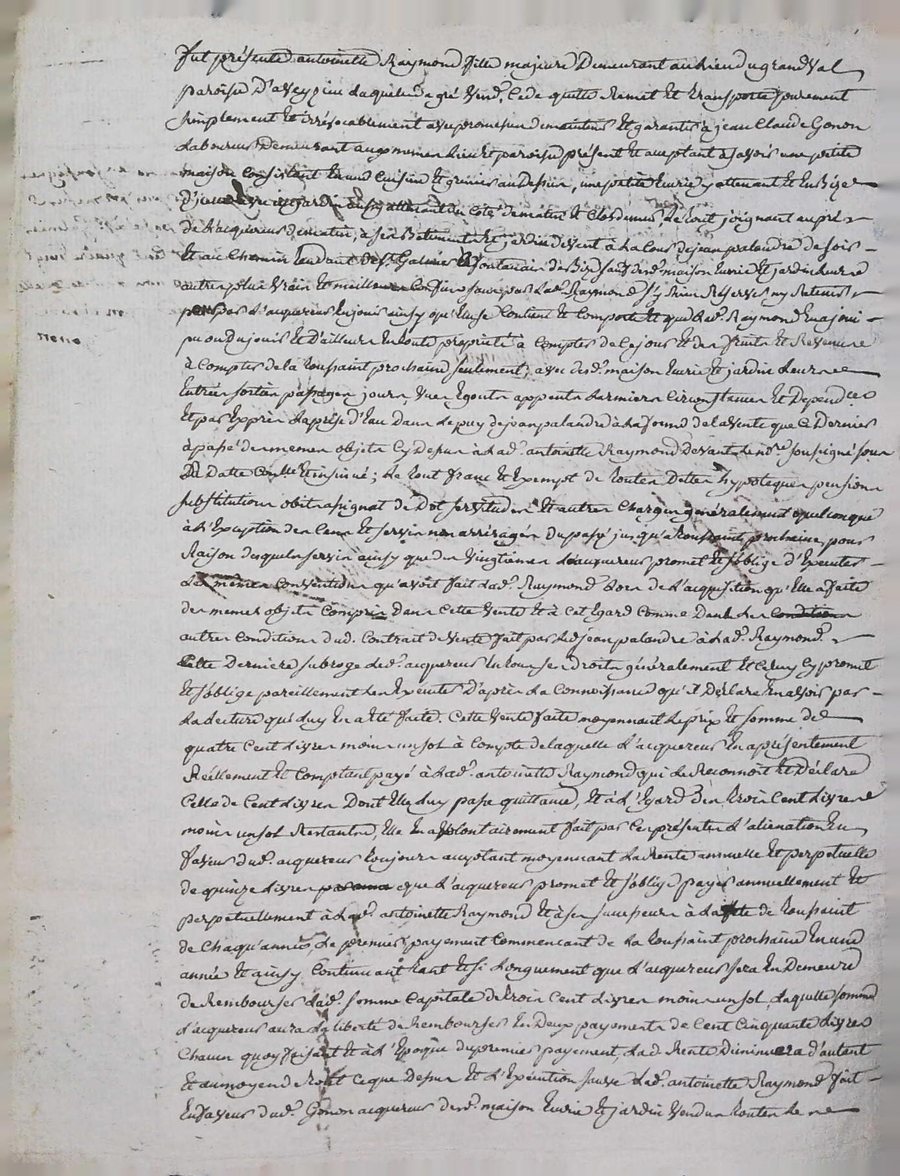 fut présente antoinette Raymond fille majeure Demeurant au lieu du grand Val
paroisse D'aveyzieu laquelle de gré Vend, Cede quitte Remet Et transporte purement
simplement Et irrévocablement avec promesse de maintenir Et garantir à jean Claude Gonon
Laboureur Demeurant au même lieu et paroisse présent Et acceptant a savoir une petite
maison Consistant En une Cuisine Et grenier au Dessus, une petite Ecurie y attenant Et En Bize
jardin aussy attenant du Coté de matin Et Clos de murs, Le tout joignant au pré
de L'acquereur de matin, a ses Batiments Et jardin de vent à La Cour de jean palandre de soir
Et au Chemin tendant de St. Galmier à fontanain de Bize sauf desd. maison Ecurie Et jardin leurs
autres plus Vrais Et meilleurs Confins sans par Lad. Raymond s'y Rien Réserver ny Retenir
pour par L'acquereur En jouir ainsy qu'Elle se Contient Et Comporte Et que Lad. Raymond En a joui
pu ou Du jouir Et D'ailleurs En toute propriété à Compter de Ce jour Et des fruits Et Revenus
à Compter de la toussaint prochaine seulement; avec desd. maison Ecurie Et jardin Leurs
Entrées sorties passages jours, Vues Egouts appents Larmiers Circonstances Et Dependces
Et par Exprès La prise d'Eau Dans Le puy de jean palandre à La forme de la Vente que Ce Dernier
à passé des memes objets Cy Dessus à Lad. antoinette Raymond Devant Le nre. soussigné sous
Sa Datte Conllé Et insinué; Le tout franc Et Exempt de toutes Dettes hypoteques pensions
substitutions obits assignat de Dot servitudes Et autres Charges généralement quelconques
à L'Exception des Cens Et servis non arréragés Du passé jusqu'a toussaint prochaine, pour
Raison desquels servis ainsy que des Vingtiemes L'acquereur promet Et s'oblige d'Executer
Les mêmes Conventions qu'avoit fait Lad. Raymond Lors de L'acquisition qu'Elle a faite
des memes objets Compris Dans Cette Vente Et à Cet Egard Comme Dans Les Conditions
autres Conditions dud. Contrait de Vente fait par Led jean palandre à Lad. Raymond.
Cette Derniere subroge Led. acquereur En tous ses Droits généralement Et Celuy Cy promet
Et s'oblige pareillement Les Executer D'après La Connoissance qu'il Déclare En avoir par
La Lecture qui Luy En a Eté faite. Cette Vente faite moyennant Le prix Et somme de
quatre Cent Livres moins un sol à Compte de laquelle L'acquereur En a présentement
Réellement Et Comptant payé à Lad. antoinette Raymond qui Le Reconnoit Et Déclare
Celle de Cent Livres Dont Elle Luy passe quittance, Et à L'Egard Des trois Cent Livres
moins un sol Restantes, Elle En a Volontairement fait par Ces présentes L'alienation En
faveur dud. acquereur toujours acceptant moyennant La Rente annuelle Et perpetuelle
de quinze Livres que L'acquereur promet Et s'oblige payer annuellement Et
perpetuellement à Lad. antoinette Raymond Et à ses successeurs à La fete de toussaint
de Chaqu'année, Le premier payement Commencant de La toussaint prochaine En une
année Et ainsy Continuant tant Et si Longuement que L'acquereur sera En Demeure
de Rembourser Lad. somme Capitale de trois Cent Livres moins un sol, Laquelle somme
L'acquereur aura La liberté de Rembourser En Deux payements de Cent Cinquante Livres
Chacun quoy faisant Et à L'Epoque du premier payement Lad Rente Diminuera d'autant
Et au moyen de tout Ce que Dessus Et L'Execution sauve Lad. antoinette Raymond fait
En faveur dud. Gonon acquereur desd. maison Ecurie Et jardin Vendus toutes Les